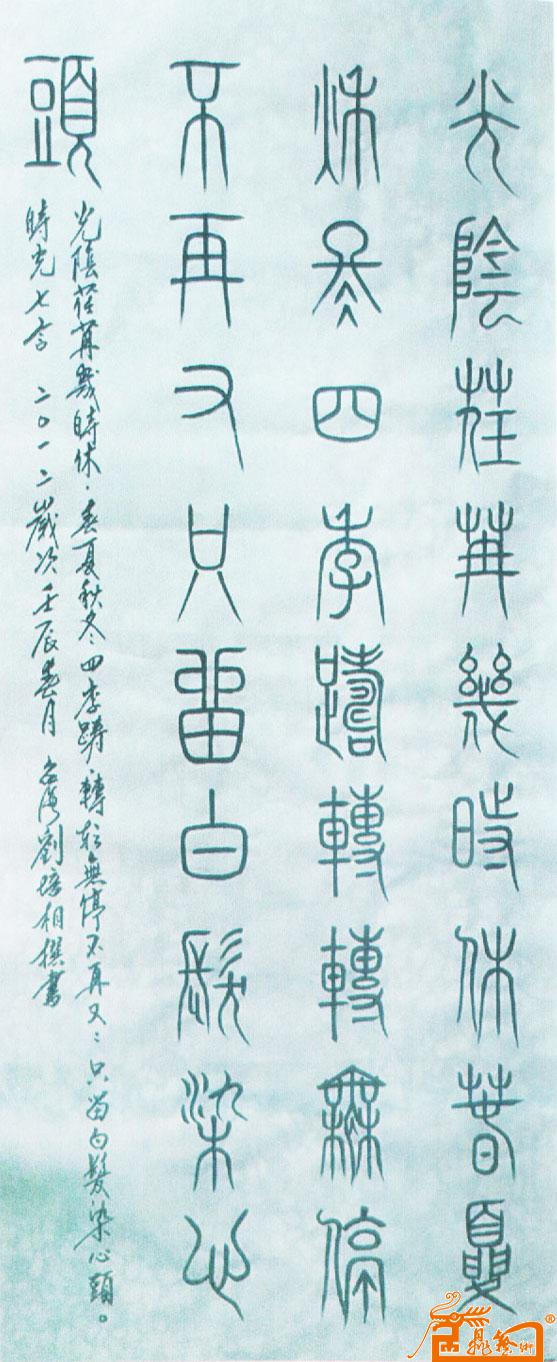 光陰荏苒幾時休春夏
秋冬四季躊轉轉無停
不再又只留白髮染心
頭
光陰荏苒幾時休．春夏秋冬四季躊．轉無停不再又：只留白髮染心頭。
時光七言 二〇一二歲次壬辰春月 劉培相撰書